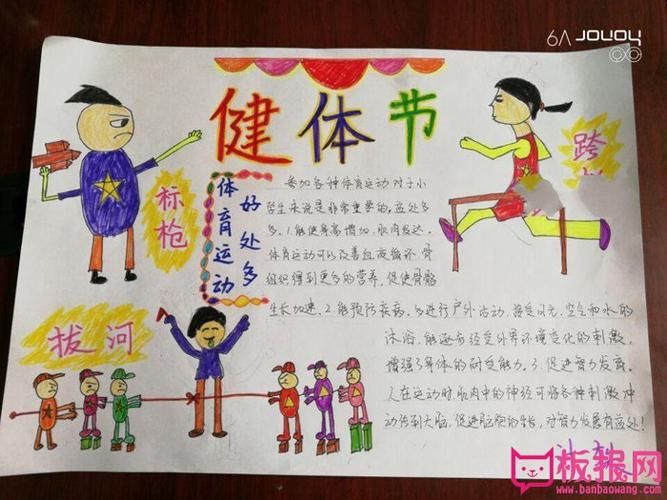 6A JOVOY
健体节
跨
标枪
体育运动
好处多
参加各种体育运动对于小
学生来说是非常重要的,益处多
多。1.能使身高增加,肌肉发达。
体育运动可以改善血液循环,骨
组织得到更多的营养,促使骨骼
生长加速。2.能预防疾病,多进行户外活动,接受日光、空气和水的
沐浴,能逐步经受外界环境变化的刺激,
增强了身体的耐受能力。3.促进智力发育。
人在运动时肌肉中的神经可将各种刺激冲
动传到大脑,促进脑胞的生长,对智力发展有益处!
拔河
板报网
www.banbaowang.com